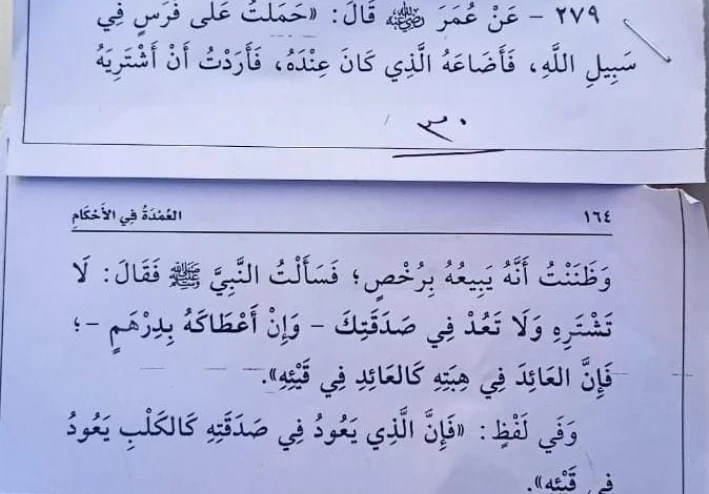 ٢٧٩ - عَنْ عُمَرَ رضي الله عنه قَالَ: «حَمَلْتُ عَلَى فَرَسٍ فِي
سَبِيلِ اللَّهِ، فَأَضَاعَهُ الَّذِي كَانَ عِنْدَهُ، فَأَرَدْتُ أَنْ أَشْتَرِيَهُ
٣٠
١٦٤ العُمْدَةُ فِي الأَحْكَامِ
وَظَنَنْتُ أَنَّهُ يَبِيعُهُ بِرُخْصٍ؛ فَسَأَلْتُ النَّبِيَّ ﷺ فَقَالَ: لَا
تَشْتَرِهِ وَلَا تَعُدْ فِي صَدَقَتِكَ - وَإِنْ أَعْطَاكَهُ بِدِرْهَمٍ -؛
فَإِنَّ العَائِدَ فِي هِبَتِهِ كَالعَائِدِ فِي قَيْئِهِ».
وَفِي لَفْظٍ: «فَإِنَّ الَّذِي يَعُودُ فِي صَدَقَتِهِ كَالكَلْبِ يَعُودُ
فِي قَيْئِهِ».